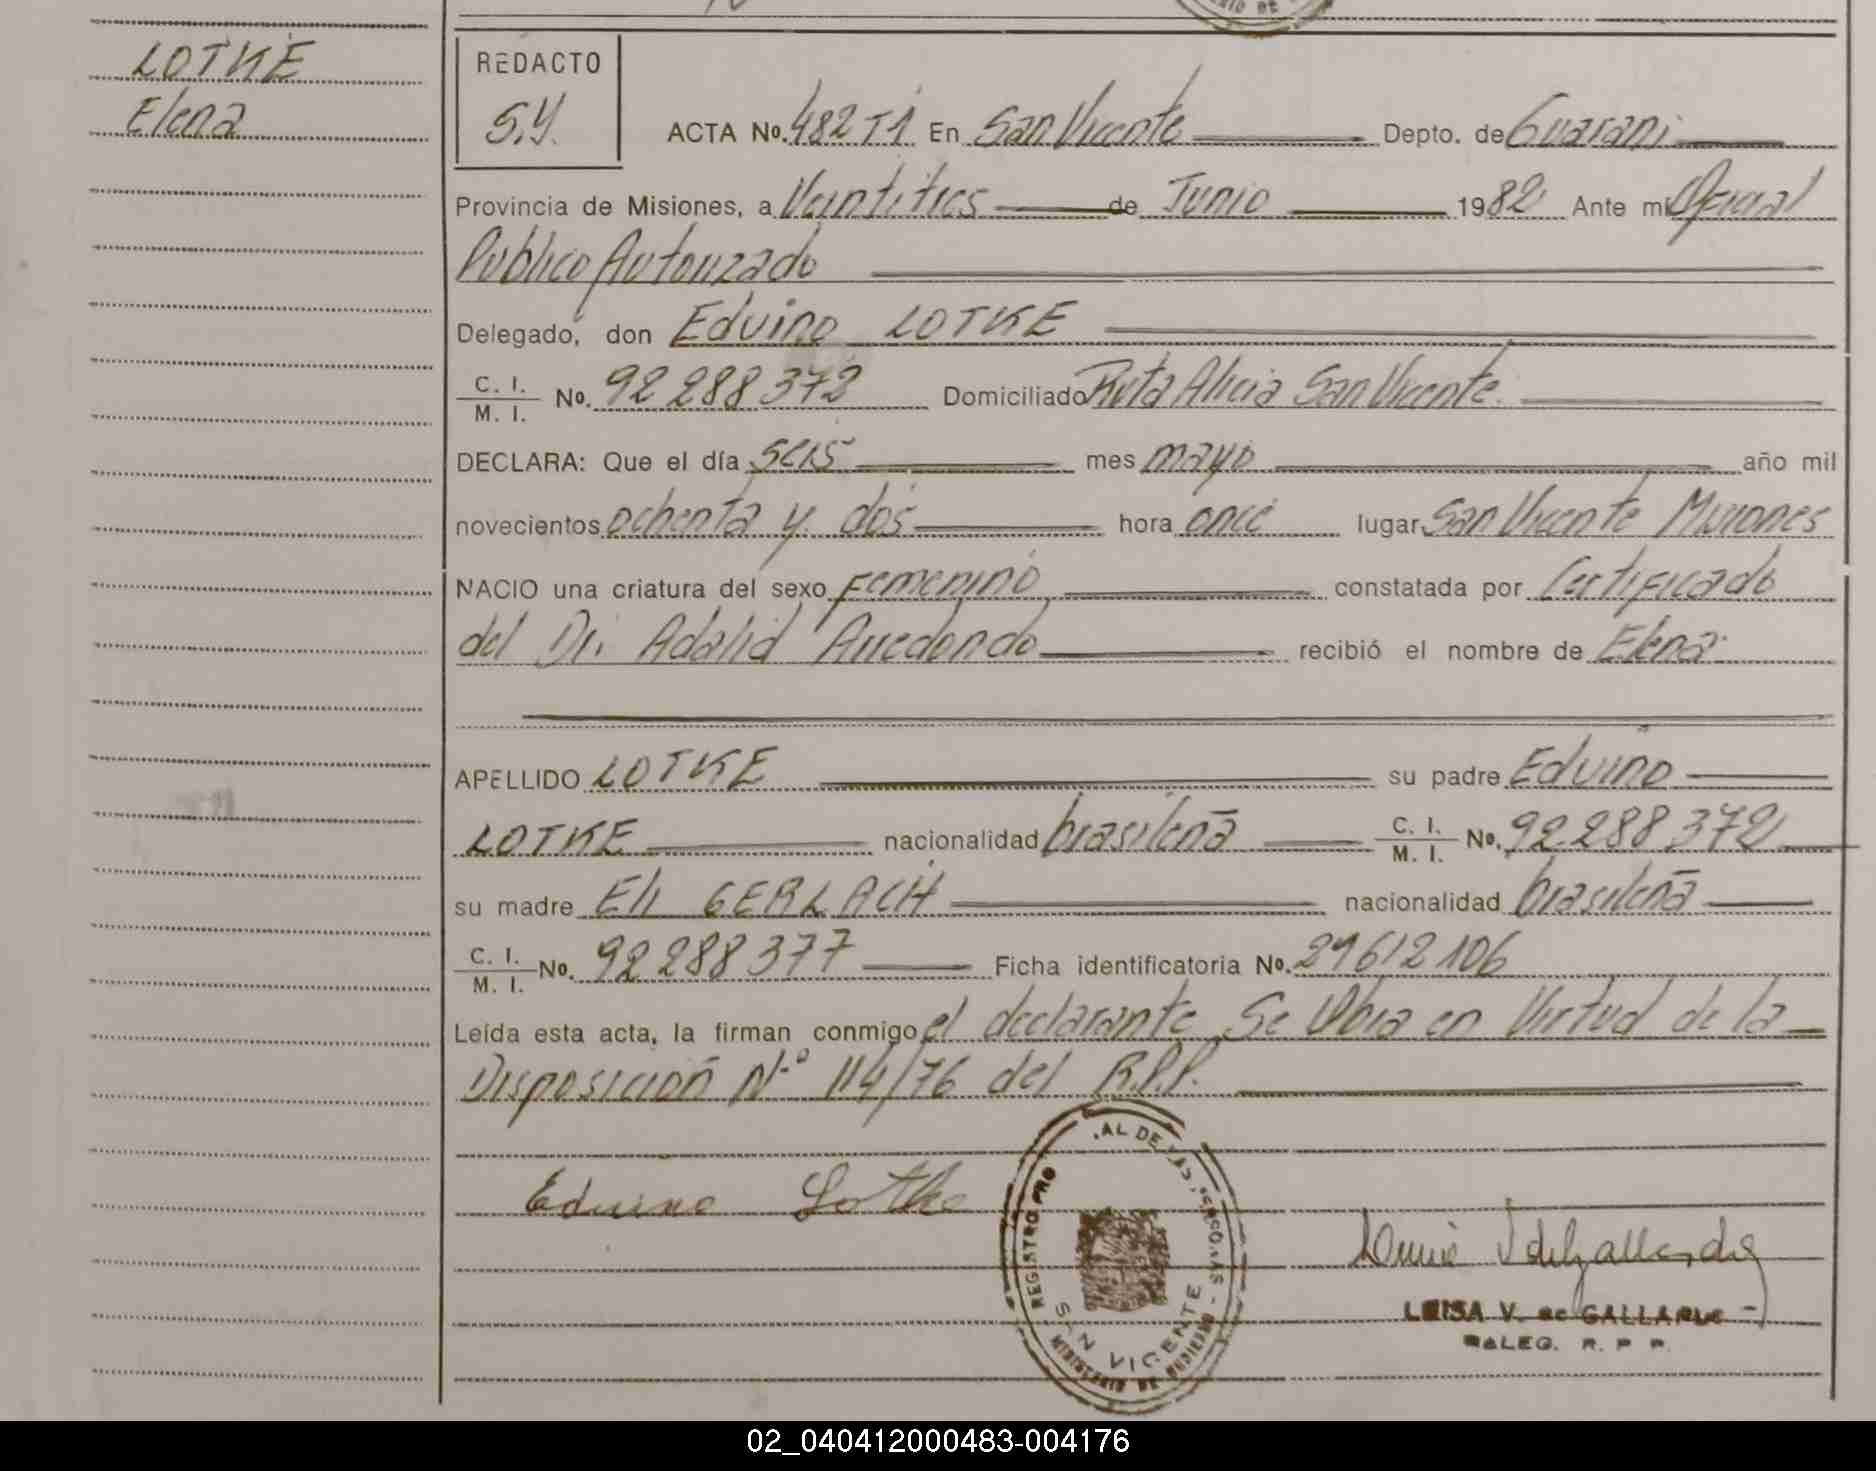 LOTKE
Elena
REDACTO
S.Y.
ACTA No. 482 T1 En San Vicente Depto. de Guarani
Provincia de Misiones, a Veintitres de Junio 1982 Ante mi Oficial
Publico Autorizado
Delegado, don Eduino LOTKE
C. I. / M. I. No. 92 288 372 Domiciliado Ruta Alicia San Vicente.
DECLARA: Que el día seis mes mayo año mil
novecientos ochenta y dos hora once lugar San Vicente Misiones
NACIO una criatura del sexo Femenino constatada por Certificado
del Dr. Adalid Arredondo recibió el nombre de Elena
APELLIDO LOTKE su padre Eduino
LOTKE nacionalidad brasileña C. I. / M. I. No. 92 288 372
su madre Eli GERLACH nacionalidad brasileña
C. I. / M. I. No. 92 288 377 Ficha identificatoria No. 29612106
Leída esta acta, la firman conmigo el declarante Se Obra en Virtud de la
Disposición Nº 114/76 del R.P.P.
Eduino Lotke
REGISTRO PRO AL DE LAS PERSONAS
SAN VICENTE
MINISTERIO DE GOBIERNO
LUISA V. de GALLARDO
DALEG. R. P. P.
02_040412000483-004176